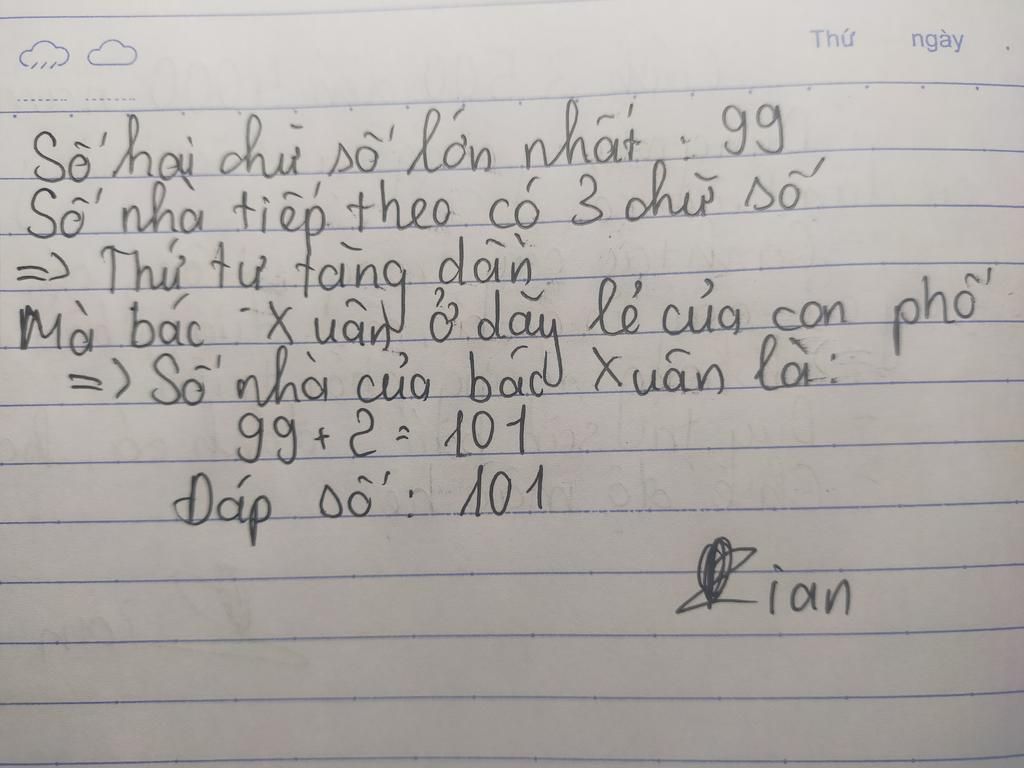 Thứ ngày
Số hai chữ số lớn nhất: 99
Số nhà tiếp theo có 3 chữ số
=> Thứ tự tăng dần
Mà bác Xuân ở dãy lẻ của con phố
=> Số nhà của bác Xuân là:
99 + 2 = 101
Đáp số: 101